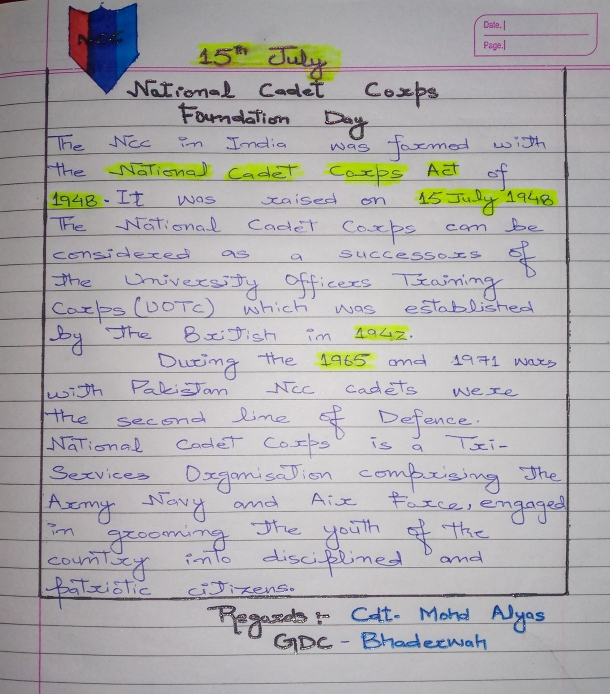 NCC
Date.
Page.
15th July
National Cadet Corps
Foundation Day
The Ncc in India was formed with
the National Cadet Corps Act of
1948. It was raised on 15 July 1948
The National Cadet Corps can be
considered as a successors of
the University Officers Training
Corps (UOTC) which was established
by the British in 1942.
During the 1965 and 1971 wars
with Pakistan Ncc cadets were
the second line of Defence.
National Cadet Corps is a Tri-
Services Organisation comprising the
Army Navy and Air Force, engaged
in grooming the youth of the
country into disciplined and
patriotic citizens.
Regards :- Cdt. Mohd Alyas
GDC - Bhaderwah